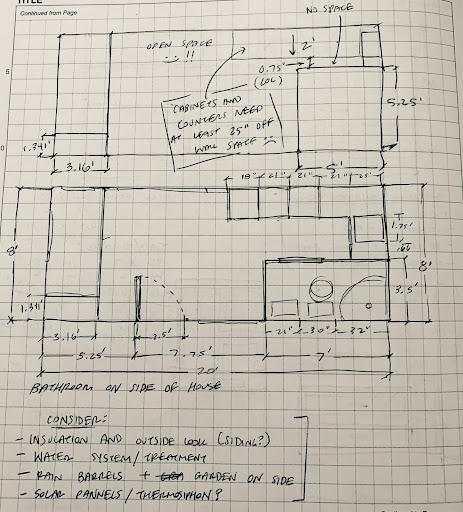 TITLE
Continued from Page
NO SPACE
OPEN SPACE
!!
2'
0.75'
(LOL)
5
CABINETS AND
COUNTERS NEED
AT LEAST 25" OFF
WALL SPACE
5.25'
0
1.341'
3.16'
5'
18" 21" 21" 21" 25"
1.75'
.66
8'
8'
3.5'
1.341
3.16'
2.5'
21" 30" 32"
5.25'
7.75'
7'
20'
BATHROOM ON SIDE OF HOUSE
CONSIDER:
- INSULATION AND OUTSIDE LOOK (SIDING?)
- WATER SYSTEM/TREATMENT
- RAIN BARRELS + GARDEN ON SIDE
- SOLAR PANNELS/THERMOSIPHON?